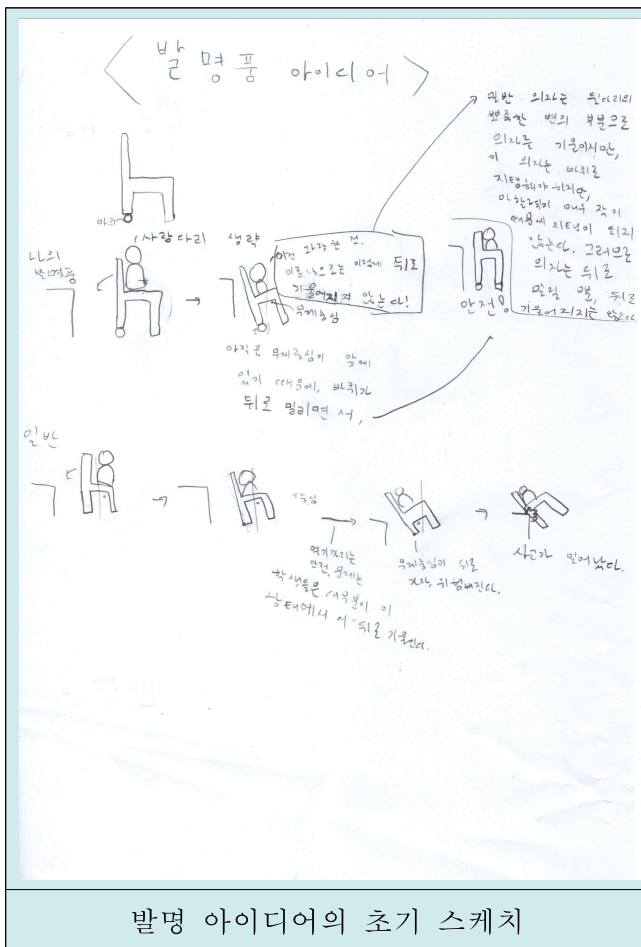 <발명품 아이디어>
바퀴
사람다리 생략
나의
발명품
이건 과장한 것.
이론적으로는 이렇게 뒤로
기울어지지 않는다!
무게중심
아직은 무게중심이 앞에
있기 때문에, 바퀴가
뒤로 밀리면서,
안전!
일반 의자는 뒷다리의
뾰족한 변의 부분으로
의자를 기울이지만,
이 의자는 바퀴로
지탱해야 하지만,
마찰력이 매우 작기
때문에 지탱이 되지
않는다. 그러므로
의자는 뒤로
밀릴 뿐, 뒤로
기울어지지는 않는다.
일반
여기까지는
안전, 문제는
학생들은 대부분이 이
상태에서 더 뒤로 기울인다.
무게중심이 뒤로
가자, 위험해진다.
사고가 일어났다.
발명 아이디어의 초기 스케치